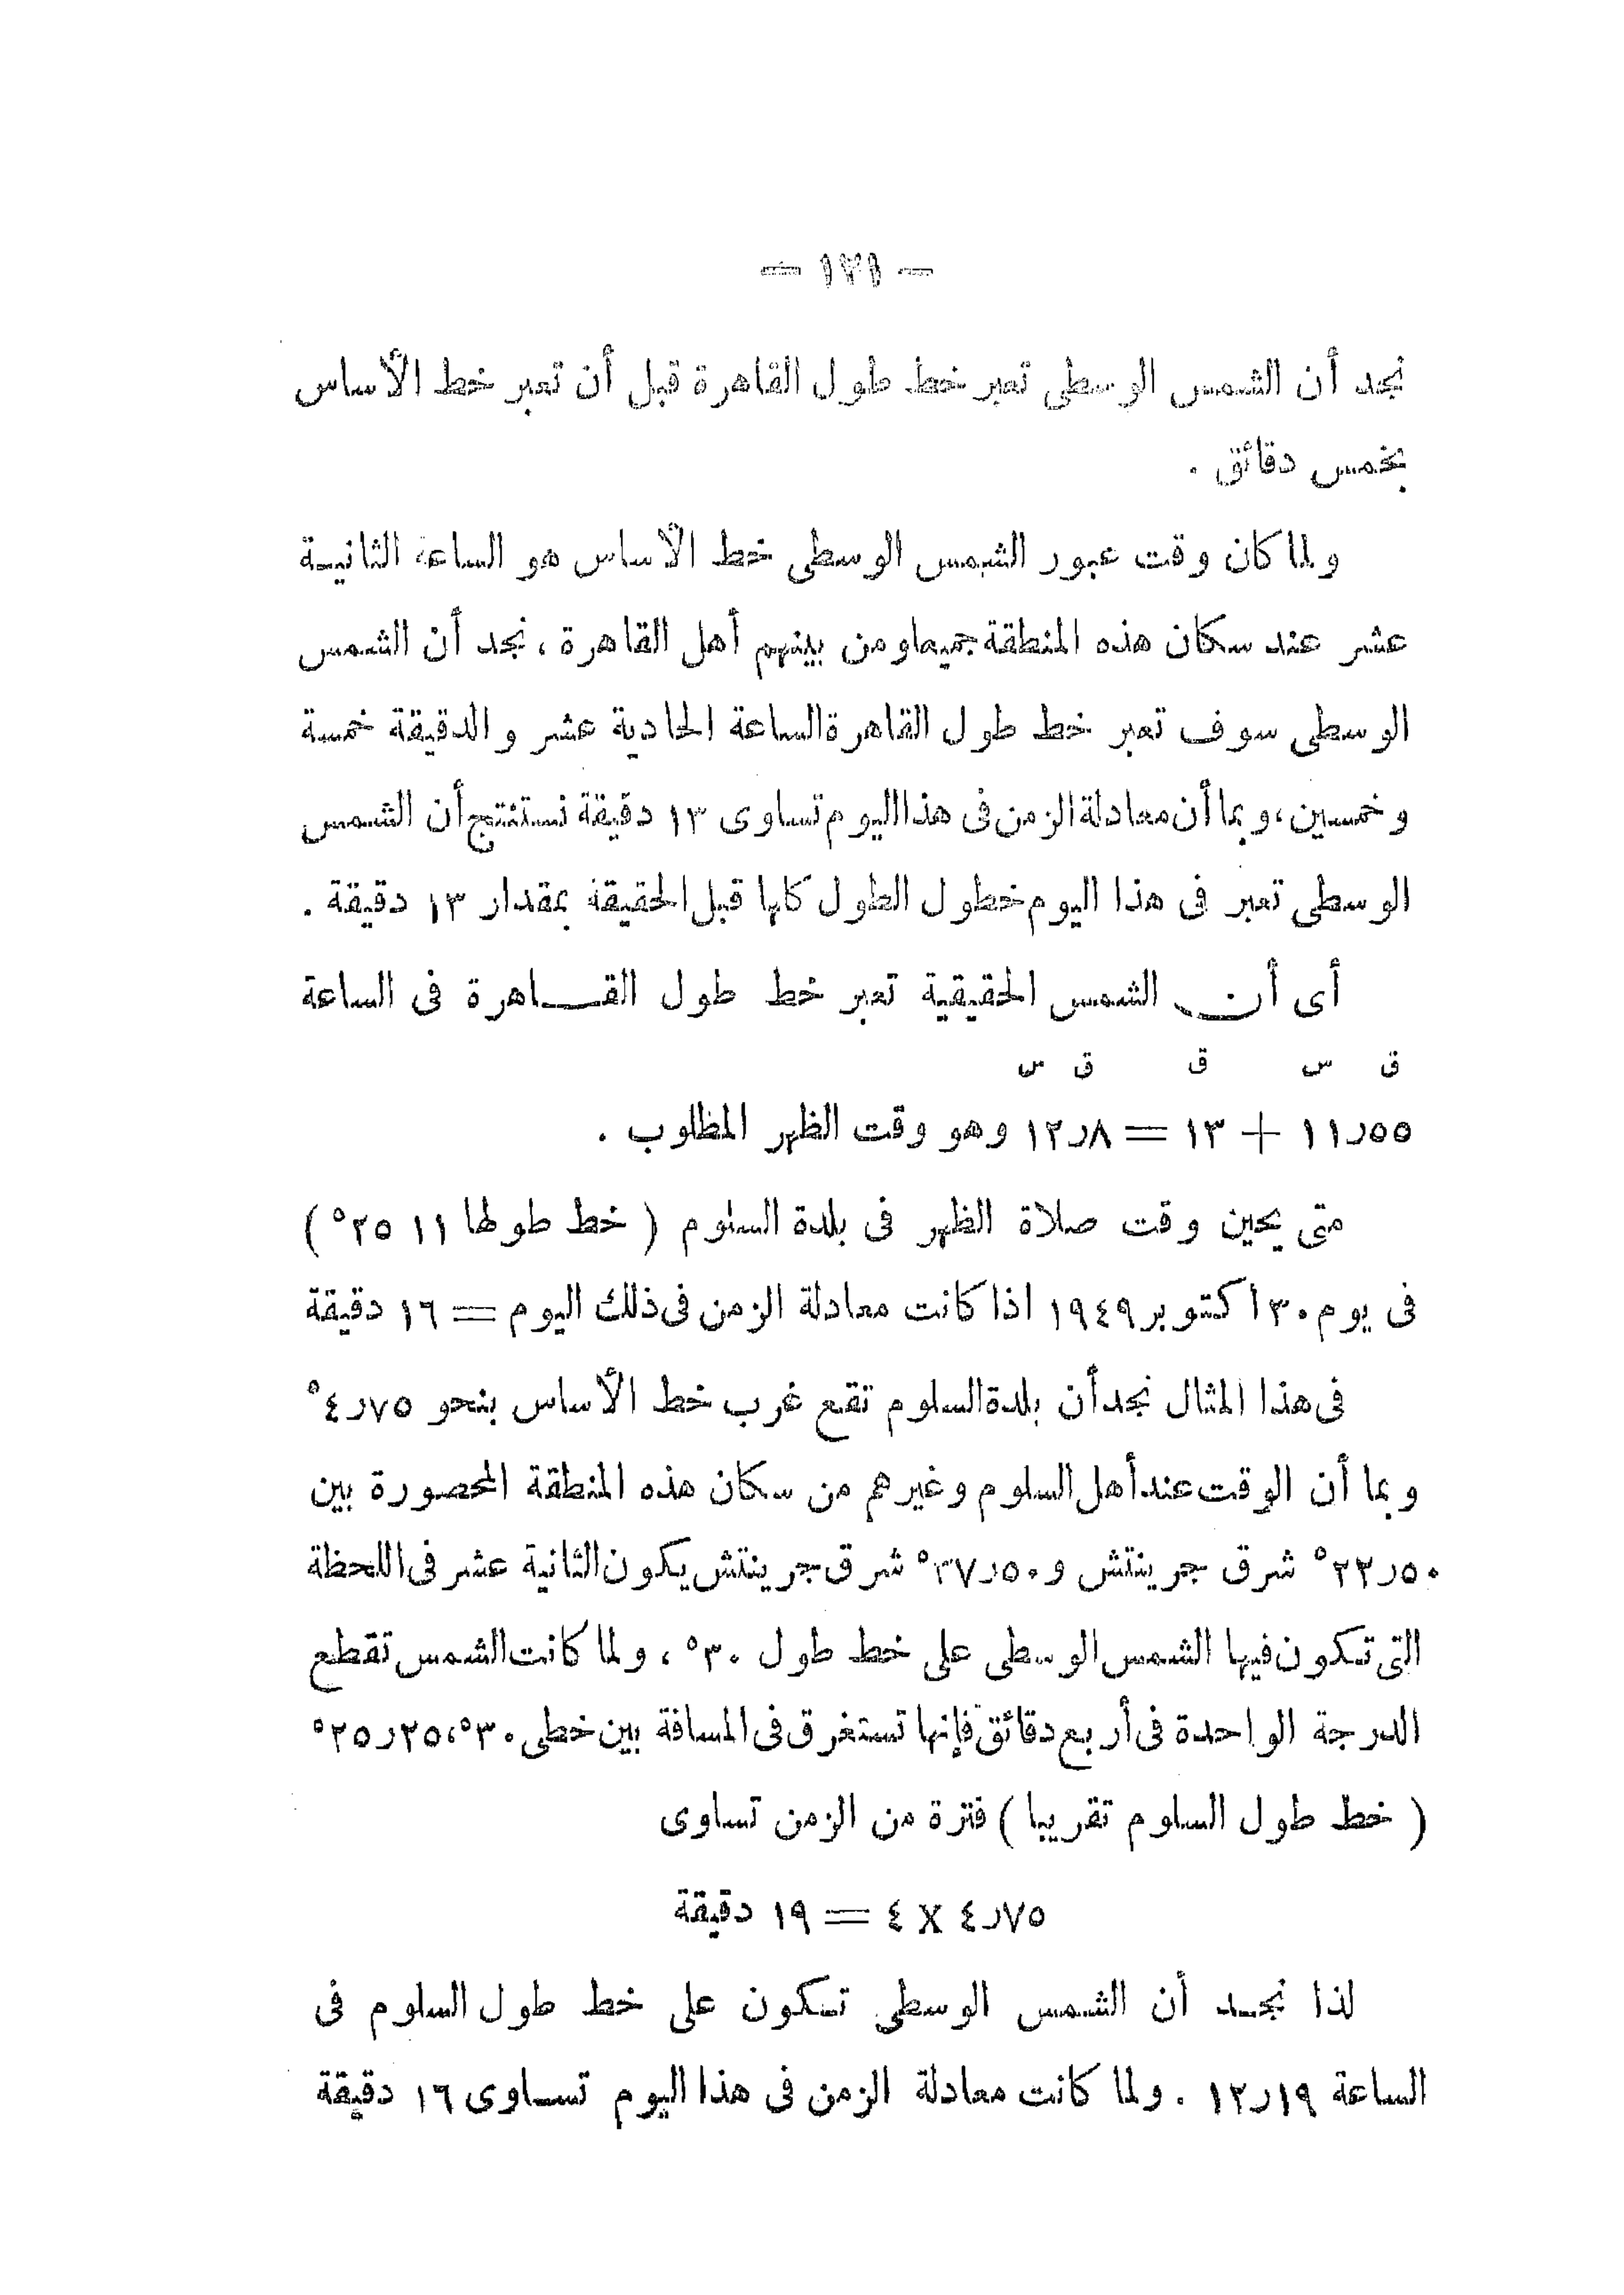 — ١٢١ —
نجد أن الشمس الوسطى تعبر خط طول القاهرة قبل أن تعبر خط الأساس
بخمس دقائق .
ولما كان وقت عبور الشمس الوسطى خط الأساس هو الساعة الثانية
عشر عند سكان هذه المنطقة جميعاومن بينهم أهل القاهرة ، نجد أن الشمس
الوسطى سوف تعبر خط طول القاهرة الساعة الحادية عشر والدقيقة خمسة
وخمسين، وبما أن معادلة الزمن فى هذا اليوم تساوى ١٣ دقيقة نستنتج أن الشمس
الوسطى تعبر فى هذا اليوم خطول الطول كلها قبل الحقيقة بمقدار ١٣ دقيقة .
أى أن الشمس الحقيقية تعبر خط طول القـــاهرة فى الساعة
ق س ق ق س
١١ر٥٥ + ١٣ = ١٢ر٨ وهو وقت الظهر المطلوب .
متى يحين وقت صلاة الظهر فى بلدة السلوم ( خط طولها ١١ ٢٥° )
فى يوم ٣٠ اكتوبر ١٩٤٩ اذا كانت معادلة الزمن فى ذلك اليوم = ١٦ دقيقة
فى هذا المثال نجد أن بلدة السلوم تقع غرب خط الأساس بنحو ٤ر٧٥°
وبما أن الوقت عند أهل السلوم وغيرهم من سكان هذه المنطقة المحصورة بين
٢٢ر٥٠° شرق جرينتش و ٣٧ر٥٠° شرق جرينتش يكون الثانية عشر فى اللحظة
التى تكون فيها الشمس الوسطى على خط طول ٣٠° ، ولما كانت الشمس تقطع
الدرجة الواحدة فى أربع دقائق فإنها تستغرق فى المسافة بين خطى ٣٠°، ٢٥ر٢٥°
( خط طول السلوم تقريبا ) فترة من الزمن تساوى
٤ر٧٥ × ٤ = ١٩ دقيقة
لذا نجـد أن الشمس الوسطى تـكون على خط طول السلوم فى
الساعة ١٢ر١٩ . ولما كانت معادلة الزمن فى هذا اليوم تساوى ١٦ دقيقة